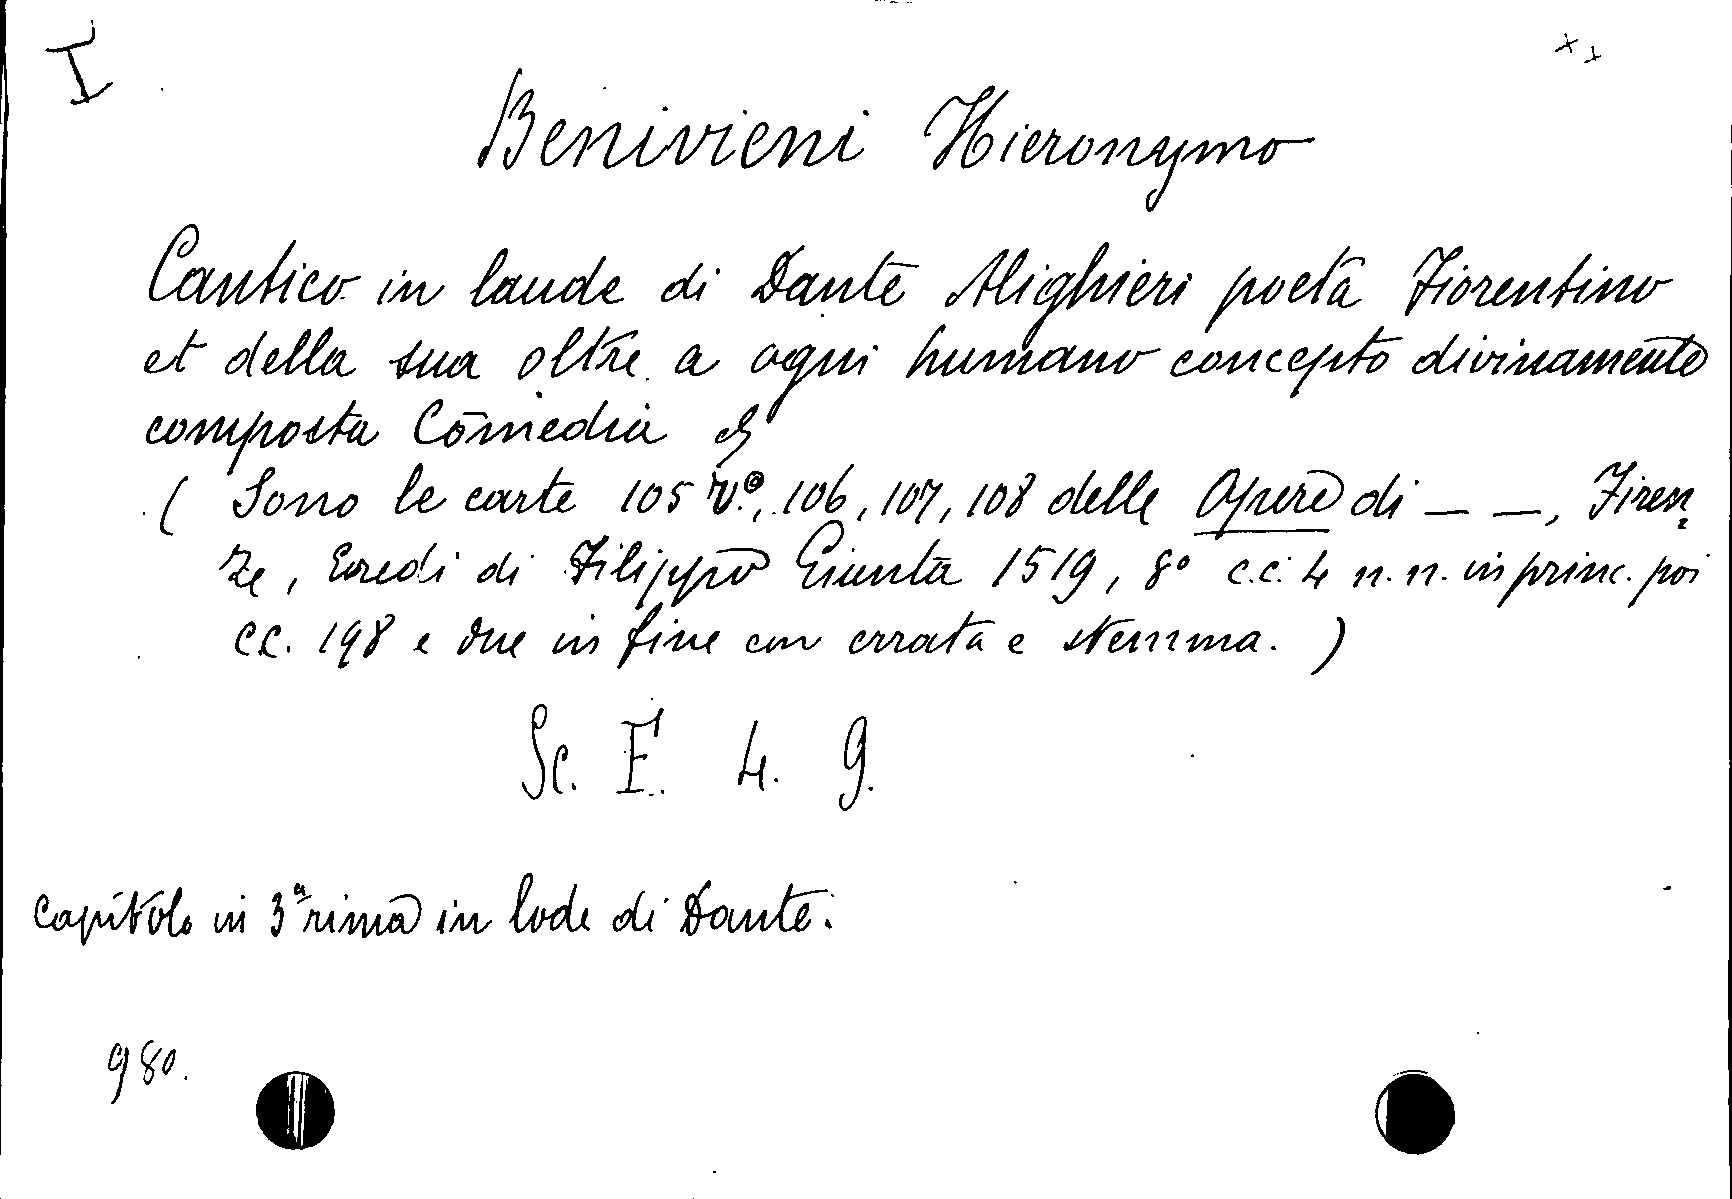 I
x x
Benivieni Hieronymo
Cantico in laude di Dante Alighieri poeta Fiorentino
et della sua oltre a ogni humano concepto divinamente
composta Cōmedia
( Sono le carte 105 v.º, 106, 107, 108 delle Opere di — —, Firen=
ze, Eredi di Filippo Giunta 1519, 8º c.c. 4 n. n. in princ. poi
cc. 198 e due in fine con errata e stemma. )
Sc. F. 4. 9.
Capitolo in 3ª rima in lode di Dante.
980.